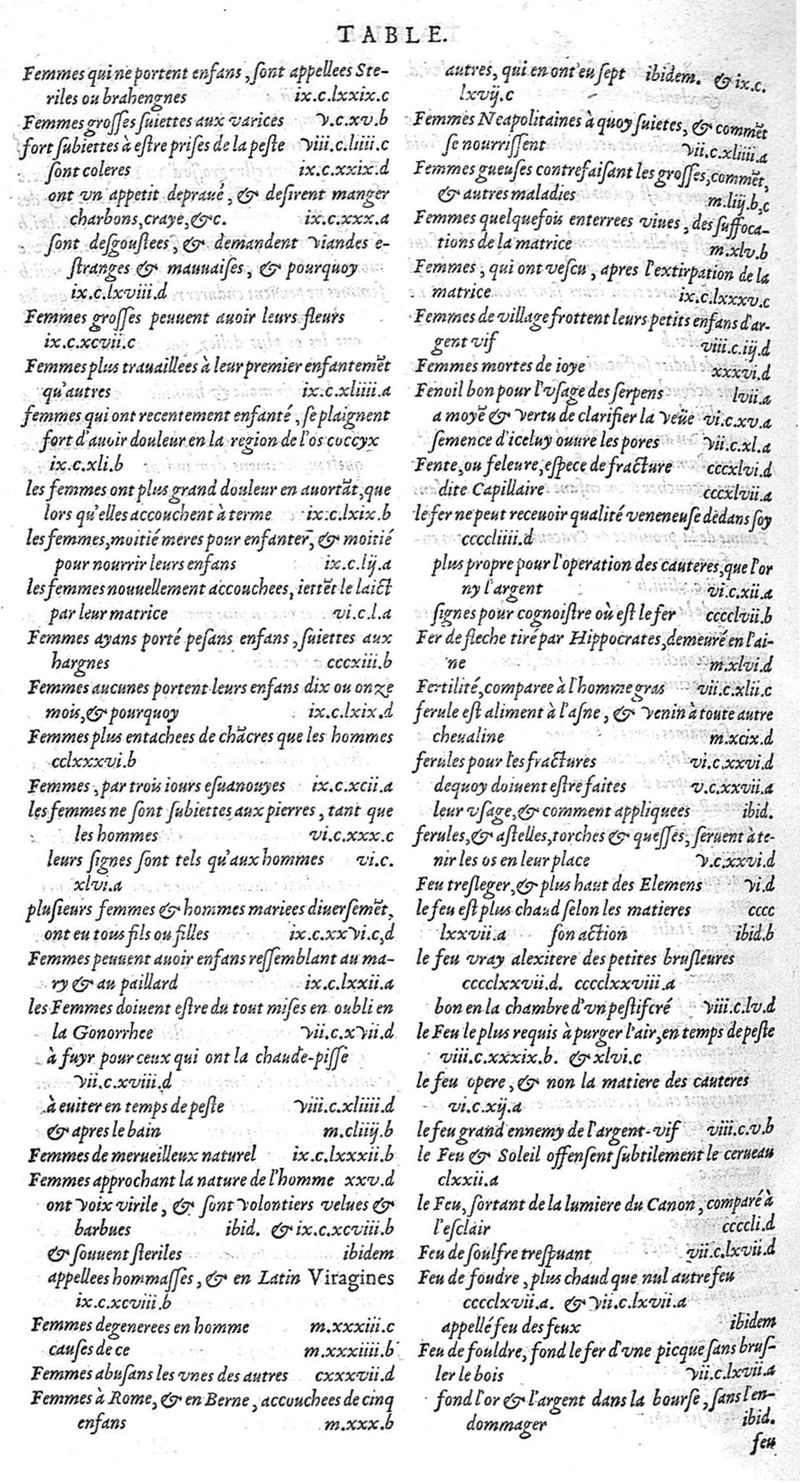 TABLE.
Femmes qui ne portent enfans, ſont appellees Ste-
riles ou brahengnes ix.c.lxxix.c
Femmes groſſes ſuiettes aux varices v.c.xv.b
fort ſubiettes à eſtre priſes de la peſte viii.c.liiii.c
ſont coleres ix.c.xxix.d
ont vn appetit depraué, & deſirent manger
charbons, craye, &c. ix.c.xxx.a
ſont deſgouſtees, & demandent viandes e-
ſtranges & mauuaiſes, & pourquoy
ix.c.lxviii.d
Femmes groſſes peuuent auoir leurs fleurs
ix.c.xcvii.c
Femmes plus trauaillees à leur premier enfantemēt
qu'autres ix.c.xliiii.a
femmes qui ont recentement enfanté, ſe plaignent
fort d'auoir douleur en la region de l'os coccyx
ix.c.xli.b
les femmes ont plus grand douleur en auortāt, que
lors qu'elles accouchent à terme ix.c.lxix.b
les femmes, moitié meres pour enfanter, & moitié
pour nourrir leurs enfans ix.c.lij.a
les femmes nouuellement accouchees, iettēt le laict
par leur matrice vi.c.l.a
Femmes ayans porté peſans enfans, ſuiettes aux
hargnes cccxiii.b
Femmes aucunes portent leurs enfans dix ou onze
mois, & pourquoy ix.c.lxix.d
Femmes plus entachees de chācres que les hommes
cclxxxvi.b
Femmes, par trois iours eſuanouyes ix.c.xcii.a
les femmes ne ſont ſubiettes aux pierres, tant que
les hommes vi.c.xxx.c
leurs ſignes ſont tels qu'aux hommes vi.c.
xlvi.a
pluſieurs femmes & hommes mariees diuerſemēt,
ont eu tous fils ou filles ix.c.xxvi.c,d
Femmes peuuent auoir enfans reſſemblant au ma-
ry & au paillard ix.c.lxxii.a
les Femmes doiuent eſtre du tout miſes en oubli en
la Gonorrhee vii.c.xvii.d
à fuyr pour ceux qui ont la chaude-piſſe
vii.c.xviii.d
à euiter en temps de peſte viii.c.xliiii.d
& apres le bain m.cliiij.b
Femmes de merueilleux naturel ix.c.lxxxii.b
Femmes approchant la nature de l'homme xxv.d
ont voix virile, & ſont volontiers velues &
barbues ibid. & ix.c.xcviii.b
& ſouuent ſteriles ibidem
appellees hommaſſes, & en Latin Viragines
ix.c.xcviii.b
Femmes degenerees en homme m.xxxiii.c
cauſes de ce m.xxxiiii.b
Femmes abuſans les vnes des autres cxxxvii.d
Femmes à Rome, & en Berne, accouchees de cinq
enfans m.xxx.b
autres, qui en ont eu ſept ibidem. & ix.c.
lxvij.c
Femmes Neapolitaines à quoy ſuietes, & commēt
ſe nourriſſent vii.c.xliiii.a
Femmes gueuſes contrefaiſant les groſſes, commēt,
& autres maladies m.liij.b,c
Femmes quelquefois enterrees viues, des ſuffoca-
tions de la matrice m.xlv.b
Femmes, qui ont veſcu, apres l'extirpation de la
matrice ix.c.lxxxv.c
Femmes de village frottent leurs petits enfans d'ar-
gent vif viii.c.iij.d
Femmes mortes de ioye xxxvi.d
Fenoil bon pour l'vſage des ſerpens lvii.a
a moyē & vertu de clarifier la veüe vi.c.xv.a
ſemence d'iceluy ouure les pores vii.c.xl.a
Fente, ou feleure, eſpece de fracture cccxlvi.d
dite Capillaire cccxlvii.a
le fer ne peut receuoir qualité veneneuſe dedans ſoy
cccclíiii.d
plus propre pour l'operation des cauteres, que l'or
ny l'argent vi.c.xii.a
ſignes pour cognoiſtre où eſt le fer cccclvii.b
Fer de fleche tiré par Hippocrates, demeuré en l'ai-
ne m.xlvi.d
Fertilité, comparee à l'homme gras vii.c.xlii.c
ferule eſt aliment à l'aſne, & venin à toute autre
cheualine m.xcix.d
ferules pour les fractures vi.c.xxvi.d
dequoy doiuent eſtre faites v.c.xxvii.a
leur vſage, & comment appliquees ibid.
ferules, & aſtelles, torches & queſſes, ſeruent à te-
nir les os en leur place v.c.xxvi.d
Feu treſleger, & plus haut des Elemens vi.d
le feu eſt plus chaud ſelon les matieres cccc
lxxvii.a ſon action ibid.b
le feu vray alexitere des petites bruſleures
cccclxxvii.d. cccclxxviii.a
bon en la chambre d'vn peſtiferé viii.c.lv.d
le Feu le plus requis à purger l'air, en temps de peſte
viii.c.xxxix.b. & xlvi.c
le feu opere, & non la matiere des cauteres
vi.c.xij.a
le feu grand ennemy de l'argent-vif viii.c.v.b
le Feu & Soleil offenſent ſubtilement le cerueau
clxxii.a
le Feu, ſortant de la lumiere du Canon, comparé à
l'eſclair ccccli.d
Feu de ſoulfre treſpuant vii.c.lxvii.d
Feu de foudre, plus chaud que nul autre feu
cccclxvii.a. & vii.c.lxvii.a
appellé feu des feux ibidem
Feu de fouldre, fond le fer d'vne picque ſans bruſ-
ler le bois vii.c.lxvii.a
fond l'or & l'argent dans la bourſe, ſans l'en-
dommager ibid.
feu